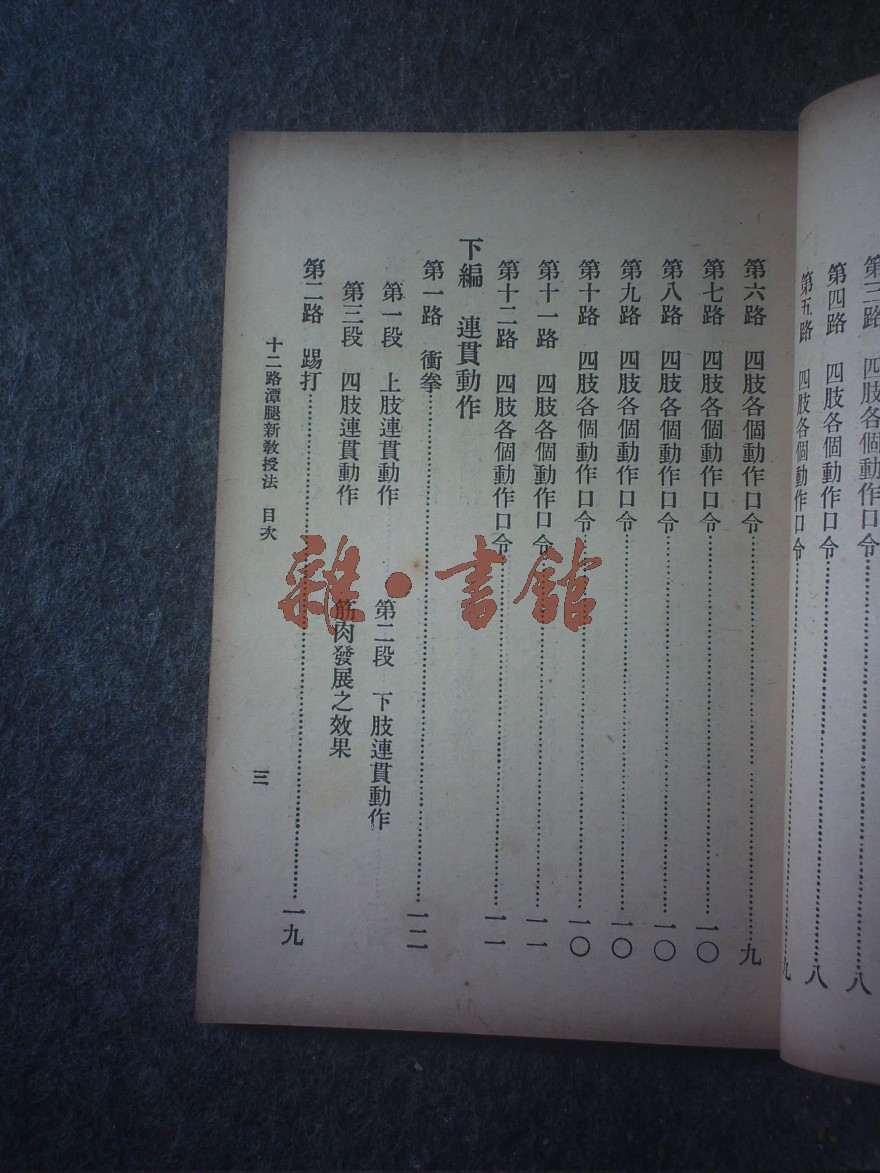 第三路　四肢各個動作口令……八
第四路　四肢各個動作口令……八
第五路　四肢各個動作口令……九
第六路　四肢各個動作口令……九
第七路　四肢各個動作口令……一〇
第八路　四肢各個動作口令……一〇
第九路　四肢各個動作口令……一〇
第十路　四肢各個動作口令……一〇
第十一路　四肢各個動作口令……一一
第十二路　四肢各個動作口令……一一
下編　連貫動作
第一路　衝拳……一二
第一段　上肢連貫動作　第二段　下肢連貫動作
第三段　四肢連貫動作　筋肉發展之效果
第二路　踢打……一九
十二路潭腿新教授法　目次　三
雜·書館